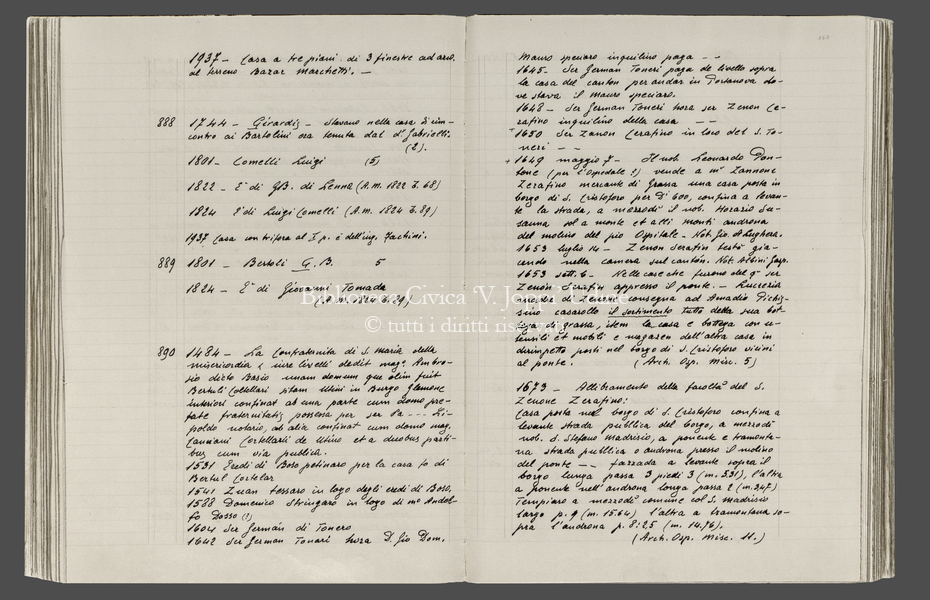 1937 - Casa a tre piani di 3 finestre ad arco.
al terreno Bazar Marchetti. -
888 1744 - Girardis - Stavano nella casa di rin-
contro ai Bartolini ora tenuta dal d.r Gabrielli.
(2).
1801 - Comelli Luigi (5)
1822 - E' di GB. di Lenna (A.M. 1822 Z. 68)
1824 E' di Luigi Comelli (A.M. 1824 Z. 89)
1937 Casa contrifora al I p. è dell'ing. Fachini.
889 1801 - Bertoli G. B. 5
1824 - E' di Giovanni Tomada
(A.M. 1824 Z. 89)
890 1484 - La Confraternita di S. Maria della
misericordia iure livelli dedit mag. Ambro-
sio dicto Basio unam domum que olim fuit
Bertuli Cortellari sitam Utini in Burgo Glemone
interiori confinat ab una parte cum domo pre-
fate fraternitatis possessa per ser Pa--- Li-
poldo notario, ab alia confinat cum domo mag.
Canciani Cortellarii de Utino et a duobus parti-
bus cum via publica.
1531 Eredi di Boso petinaro per la casa fo di
Bertul Cortelar
1541 Zuan tessaro in logo degli eredi di Boso,
1588 Domenico Stringaro in logo di m.o Andol-
fo Dosso (!)
1604 Ser German di Tonero
1642 Ser German Tonari hora D. Gio Dom.
Mauro speciaro inquilino paga - -
1645 - Ser German Toneri paga de livello sopra
la casa del canton per andar in Portanova do-
ve stava il Mauro speciaro.
1648 - Ser German Toneri hora ser Zenon Ce-
rafino inquilino della casa - -
1650 Ser Zanon Cerafino in loco del S. To-
neri - -
+ 1649 maggio 7 - Il nob. Leonardo Don-
tone (per l'Ospedale !) vende a m.r Zannone
Zerafino mercante di Grassa una casa posta in
borgo di S. Cristoforo per D.i 600, confina a levan-
te la strada, a mezzodì il nob. Horazio Su-
sanna sol a monte et alli monti androna
del molino del pio Ospitale - Not. Gio. A. Lughera.
1653 luglio 14 - Zenon Serafin testò gia-
cendo nella camera sul cantón. Not. Albini Gasp.
1653 sett. 6 - Nelle case che furono del q.m ser
Zenón Serafin appresso il ponte. - Lucrezia
di Zenon consegna ad Amadio
casarollo il sortimento tutto della sua bot-
tega di grassa, item la casa e bottega con u-
tensili et mobili e magazen dell'altra casa in
dirimpetto posti nel borgo di S. Cristoforo vicini
al ponte. (Arch. Osp. Misc. 5)
1673 - Allibramento della facoltà del S.
Zenone Zerafino:
Casa posta nel borgo di S. Cristoforo confina a
levante strada pubblica del borgo, a mezzodì
nob. S. Stefano Madrisio, a ponente e tramonta-
na strada pubblica o androna presso il molino
del ponte -- fazzada a levante sopra il
borgo lunga passa 3 piedi 3 (m. 5.31), l'altra
a ponente nell'androna longa passa 2 (m. 3.47)
Tempiaro a mezzodì comune col S. Madrisio
largo p. 9 (m. 15.64) l'altra a tramontana so-
pra l'androna p. 8:2.5 (m. 14.76).
(Arch. Osp. Misc. 11.)
Biblioteca Civica "V. Joppi" Udine
© tutti i diritti riservati